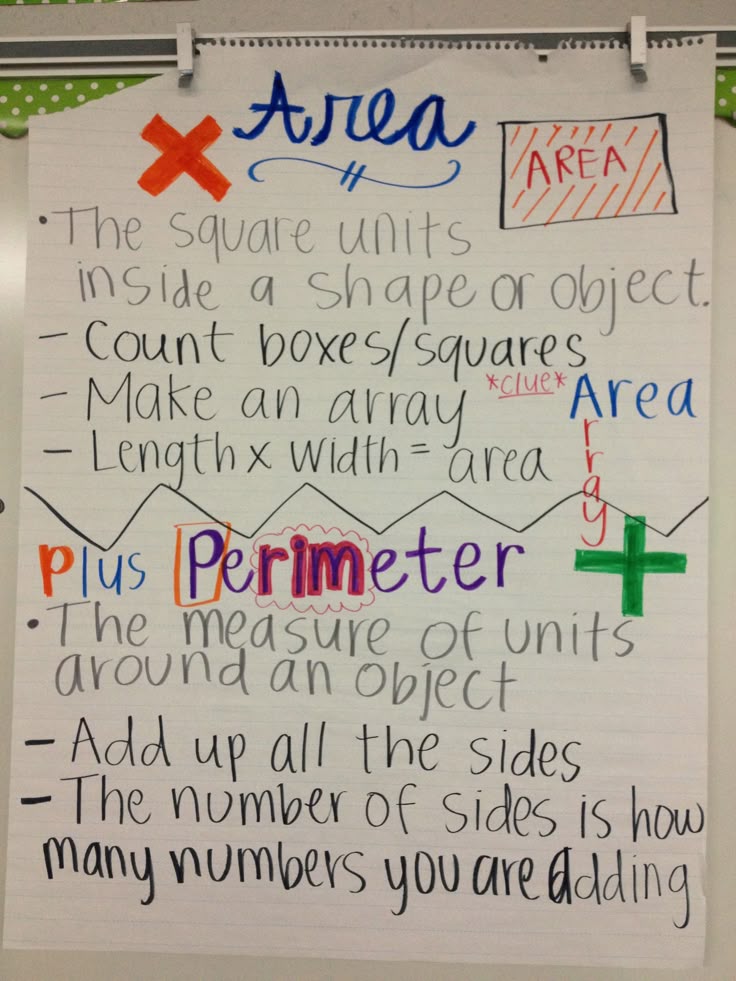 Area
AREA
• The square units
inside a shape or object.
- Count boxes/squares
- Make an array *clue* Area
rray
- Length x width = area
plus Perimeter +
• The measure of units
around an object
- Add up all the sides
- The number of sides is how
many numbers you are adding